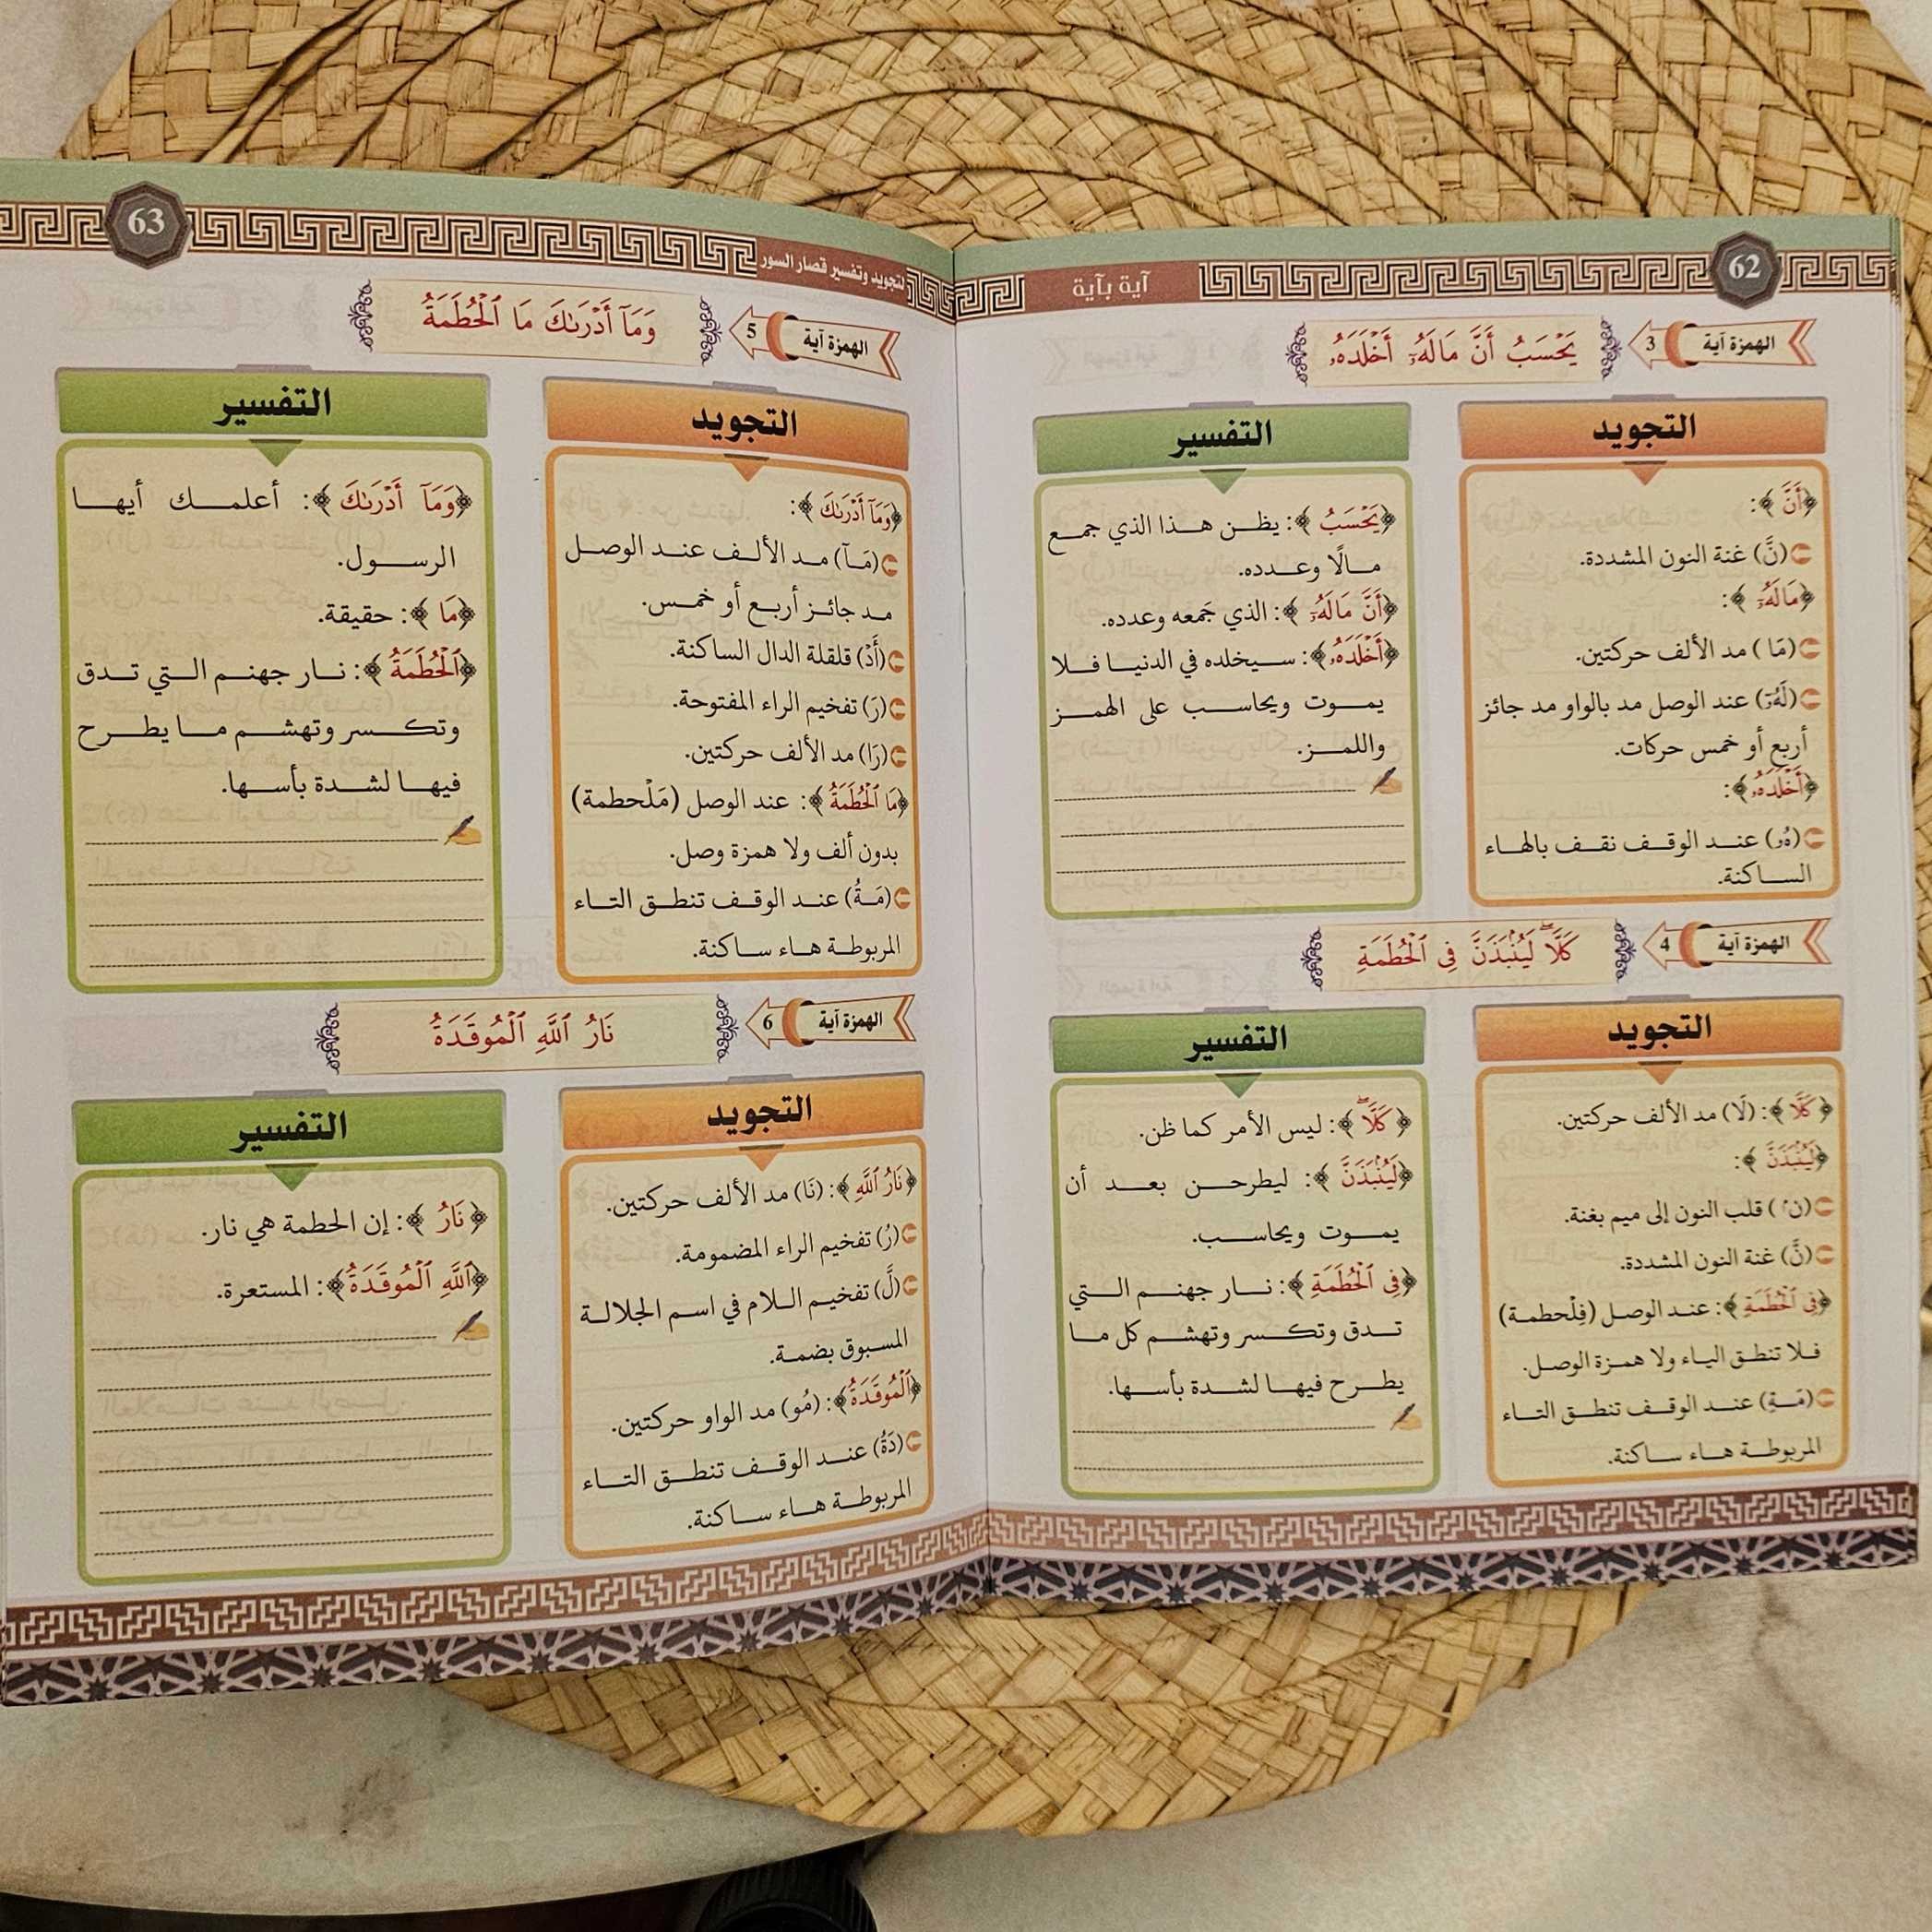 62
آية بآية
الهمزة آية 3
يَحْسَبُ أَنَّ مَالَهُۥٓ أَخْلَدَهُۥ
التجويد
﴿أَنَّ﴾:
(نَّ) غنة النون المشددة.
﴿مَالَهُۥٓ﴾:
(مَا) مد الألف حركتين.
(لَهُۥٓ) عند الوصل مد بالواو مد جائز
أربع أو خمس حركات.
﴿أَخْلَدَهُۥ﴾:
(هُۥ) عند الوقف نقف بالهاء
الساكنة.
التفسير
﴿يَحْسَبُ﴾: يظن هذا الذي جمع
مالًا وعدده.
﴿أَنَّ مَالَهُۥٓ﴾: الذي جَمعه وعدده.
﴿أَخْلَدَهُۥ﴾: سيخلده في الدنيا فلا
يموت ويحاسب على الهمز
واللمز.
الهمزة آية 4
كَلَّاۖ لَيُنۢبَذَنَّ فِى ٱلْحُطَمَةِ
التجويد
﴿كَلَّاۖ﴾: (لَا) مد الألف حركتين.
﴿لَيُنۢبَذَنَّ﴾:
(نۢ) قلب النون إلى ميم بغنة.
(نَّ) غنة النون المشددة.
﴿فِى ٱلْحُطَمَةِ﴾: عند الوصل (فِلْحطمة)
فلا تنطق الياء ولا همزة الوصل.
(مَةِ) عند الوقف تنطق التاء
المربوطة هاء ساكنة.
التفسير
﴿كَلَّاۖ﴾: ليس الأمر كما ظن.
﴿لَيُنۢبَذَنَّ﴾: ليطرحن بعد أن
يموت ويحاسب.
﴿فِى ٱلْحُطَمَةِ﴾: نار جهنم التي
تدق وتكسر وتهشم كل ما
يطرح فيها لشدة بأسها.
63
لتجويد وتفسير قصار السور
الهمزة آية 5
وَمَآ أَدْرَىٰكَ مَا ٱلْحُطَمَةُ
التجويد
﴿وَمَآ أَدْرَىٰكَ﴾:
(مَآ) مد الألف عند الوصل
مد جائز أربع أو خمس.
(أَدْ) قلقلة الدال الساكنة.
(رَ) تفخيم الراء المفتوحة.
(رَا) مد الألف حركتين.
﴿مَا ٱلْحُطَمَةُ﴾: عند الوصل (مَلْحطمة)
بدون ألف ولا همزة وصل.
(مَةُ) عند الوقف تنطق التاء
المربوطة هاء ساكنة.
التفسير
﴿وَمَآ أَدْرَىٰكَ﴾: أعلمك أيها
الرسول.
﴿مَا﴾: حقيقة.
﴿ٱلْحُطَمَةُ﴾: نار جهنم التي تدق
وتكسر وتهشم ما يطرح
فيها لشدة بأسها.
الهمزة آية 6
نَارُ ٱللَّهِ ٱلْمُوقَدَةُ
التجويد
﴿نَارُ ٱللَّهِ﴾: (نَا) مد الألف حركتين.
(رُ) تفخيم الراء المضمومة.
(لَّ) تفخيم اللام في اسم الجلالة
المسبوق بضمة.
﴿ٱلْمُوقَدَةُ﴾: (مُو) مد الواو حركتين.
(دَةُ) عند الوقف تنطق التاء
المربوطة هاء ساكنة.
التفسير
﴿نَارُ﴾: إن الحطمة هي نار.
﴿ٱللَّهِ ٱلْمُوقَدَةُ﴾: المستعرة.